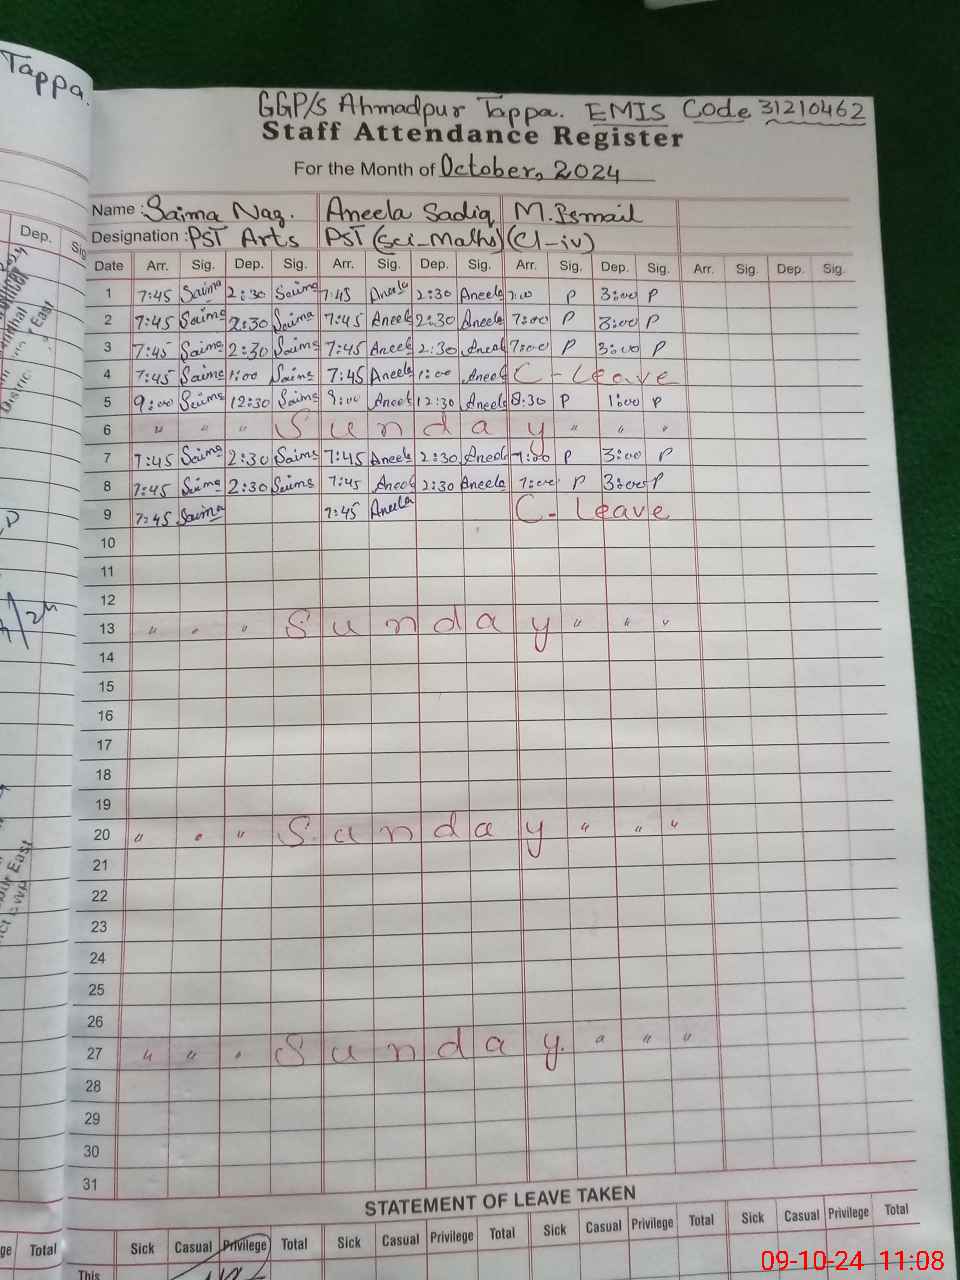 Tappa.
GGP/S Ahmadpur Tappa. EMIS Code 31210462
Staff Attendance Register
For the Month of October, 2024
Name : Saima Naz. Aneela Sadiq M. Ismail
Designation : PST Arts PST (Sci-Maths) (Cl-iv)
Dep.
Date Arr. Sig. Dep. Sig. Arr. Sig. Dep. Sig. Arr. Sig. Dep. Sig. Arr. Sig. Dep. Sig.
1 7:45 Saima 2:30 Saima 7:45 Aneela 2:30 Aneela 7:00 P 3:00 P
2 7:45 Saima 2:30 Saima 7:45 Aneela 2:30 Aneela 7:00 P 3:00 P
3 7:45 Saima 2:30 Saima 7:45 Aneela 2:30 Aneela 7:00 P 3:00 P
4 7:45 Saima 1:00 Saima 7:45 Aneela 1:00 Aneela C-Leave
5 9:00 Saima 12:30 Saima 9:00 Aneela 12:30 Aneela 8:30 P 1:00 P
6 " " " Sunday " " "
7 7:45 Saima 2:30 Saima 7:45 Aneela 2:30 Aneela 7:00 P 3:00 P
8 7:45 Saima 2:30 Saima 7:45 Aneela 2:30 Aneela 7:00 P 3:00 P
9 7:45 Saima 7:45 Aneela C-Leave
10
11
12
13 " " " Sunday " " "
14
15
16
17
18
19
20 " " " Sunday " " "
21
22
23
24
25
26
27 " " " Sunday " " "
28
29
30
31
STATEMENT OF LEAVE TAKEN
Total Sick Casual Privilege Total Sick Casual Privilege Total Sick Casual Privilege Total Sick Casual Privilege Total
This
09-10-24 11:08